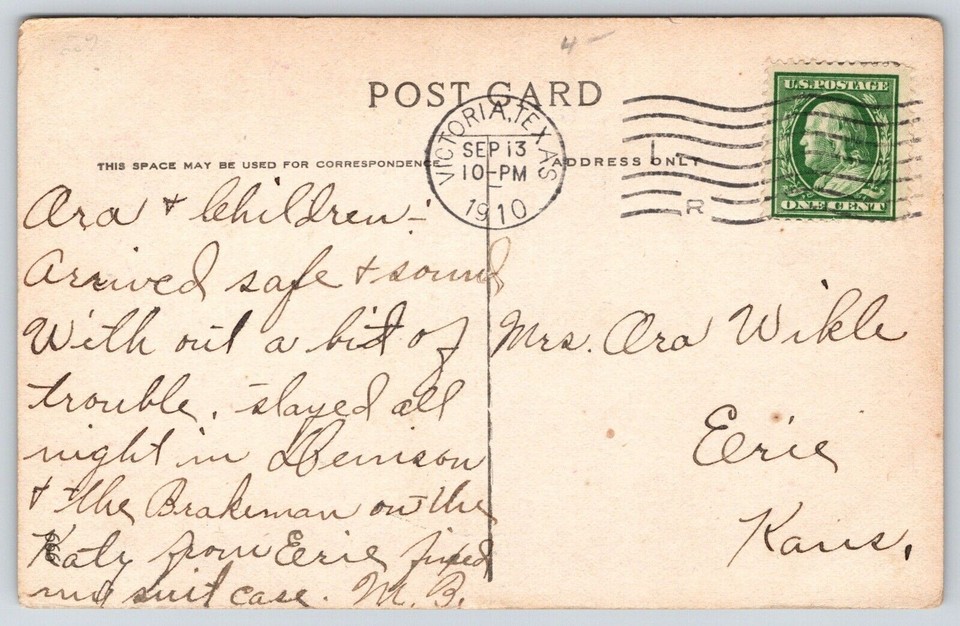 4-
POST CARD
VICTORIA, TEXAS
SEP 13
10-PM
1910
U.S. POSTAGE
ONE CENT
1
R
THIS SPACE MAY BE USED FOR CORRESPONDENCE
ADDRESS ONLY
Ora & Children:-
Arrived safe & sound
With out a bit of
trouble. stayed all
night in Denison
& the Brakeman on the
Katy from Erie fixed
my suit case. M. B.
666
Mrs. Ora Wikle
Erie
Kans.